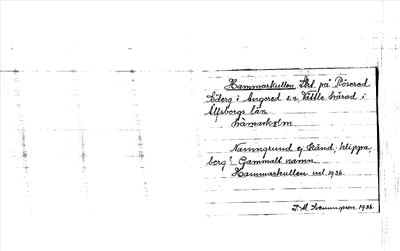 Hammarkullen, Lht. på Rösered
Söderg i Angered sn, Vättle härad i
Älfsborgs län.
hámarkolm
Namngrund ej känd, klippa,
berg? Gammalt namn.
Hammarkullen uel. 1936.
D. M. Svenungsson. 1936.